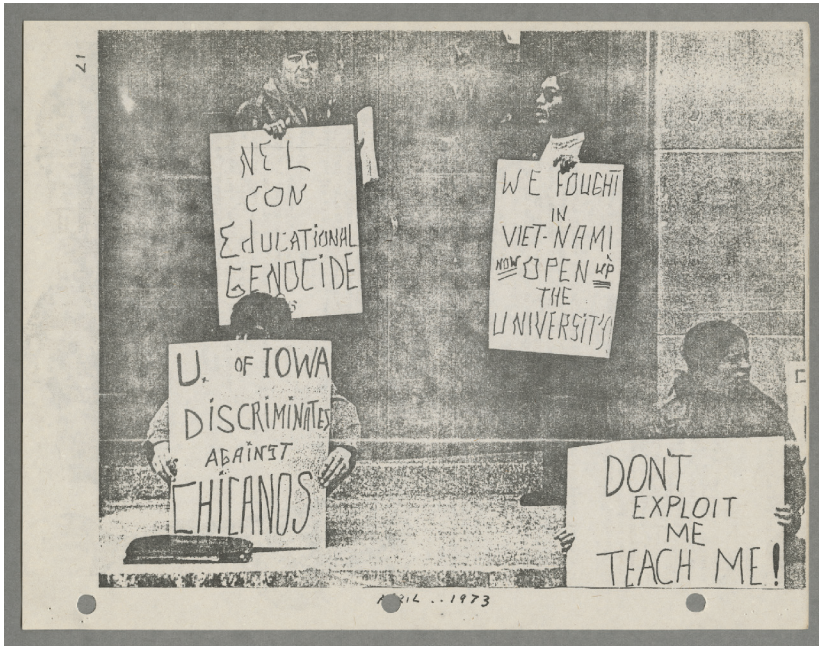 17
NEL
CON
EDUCATIONAL
GENOCIDE
WE FOUGHT
IN
VIET-NAM!
NOW OPEN UP
THE
UNIVERSIT'S
U. OF IOWA
DISCRIMINATES
AGAINST
CHICANOS
DON'T
EXPLOIT
ME
TEACH ME!
APRIL .. 1973